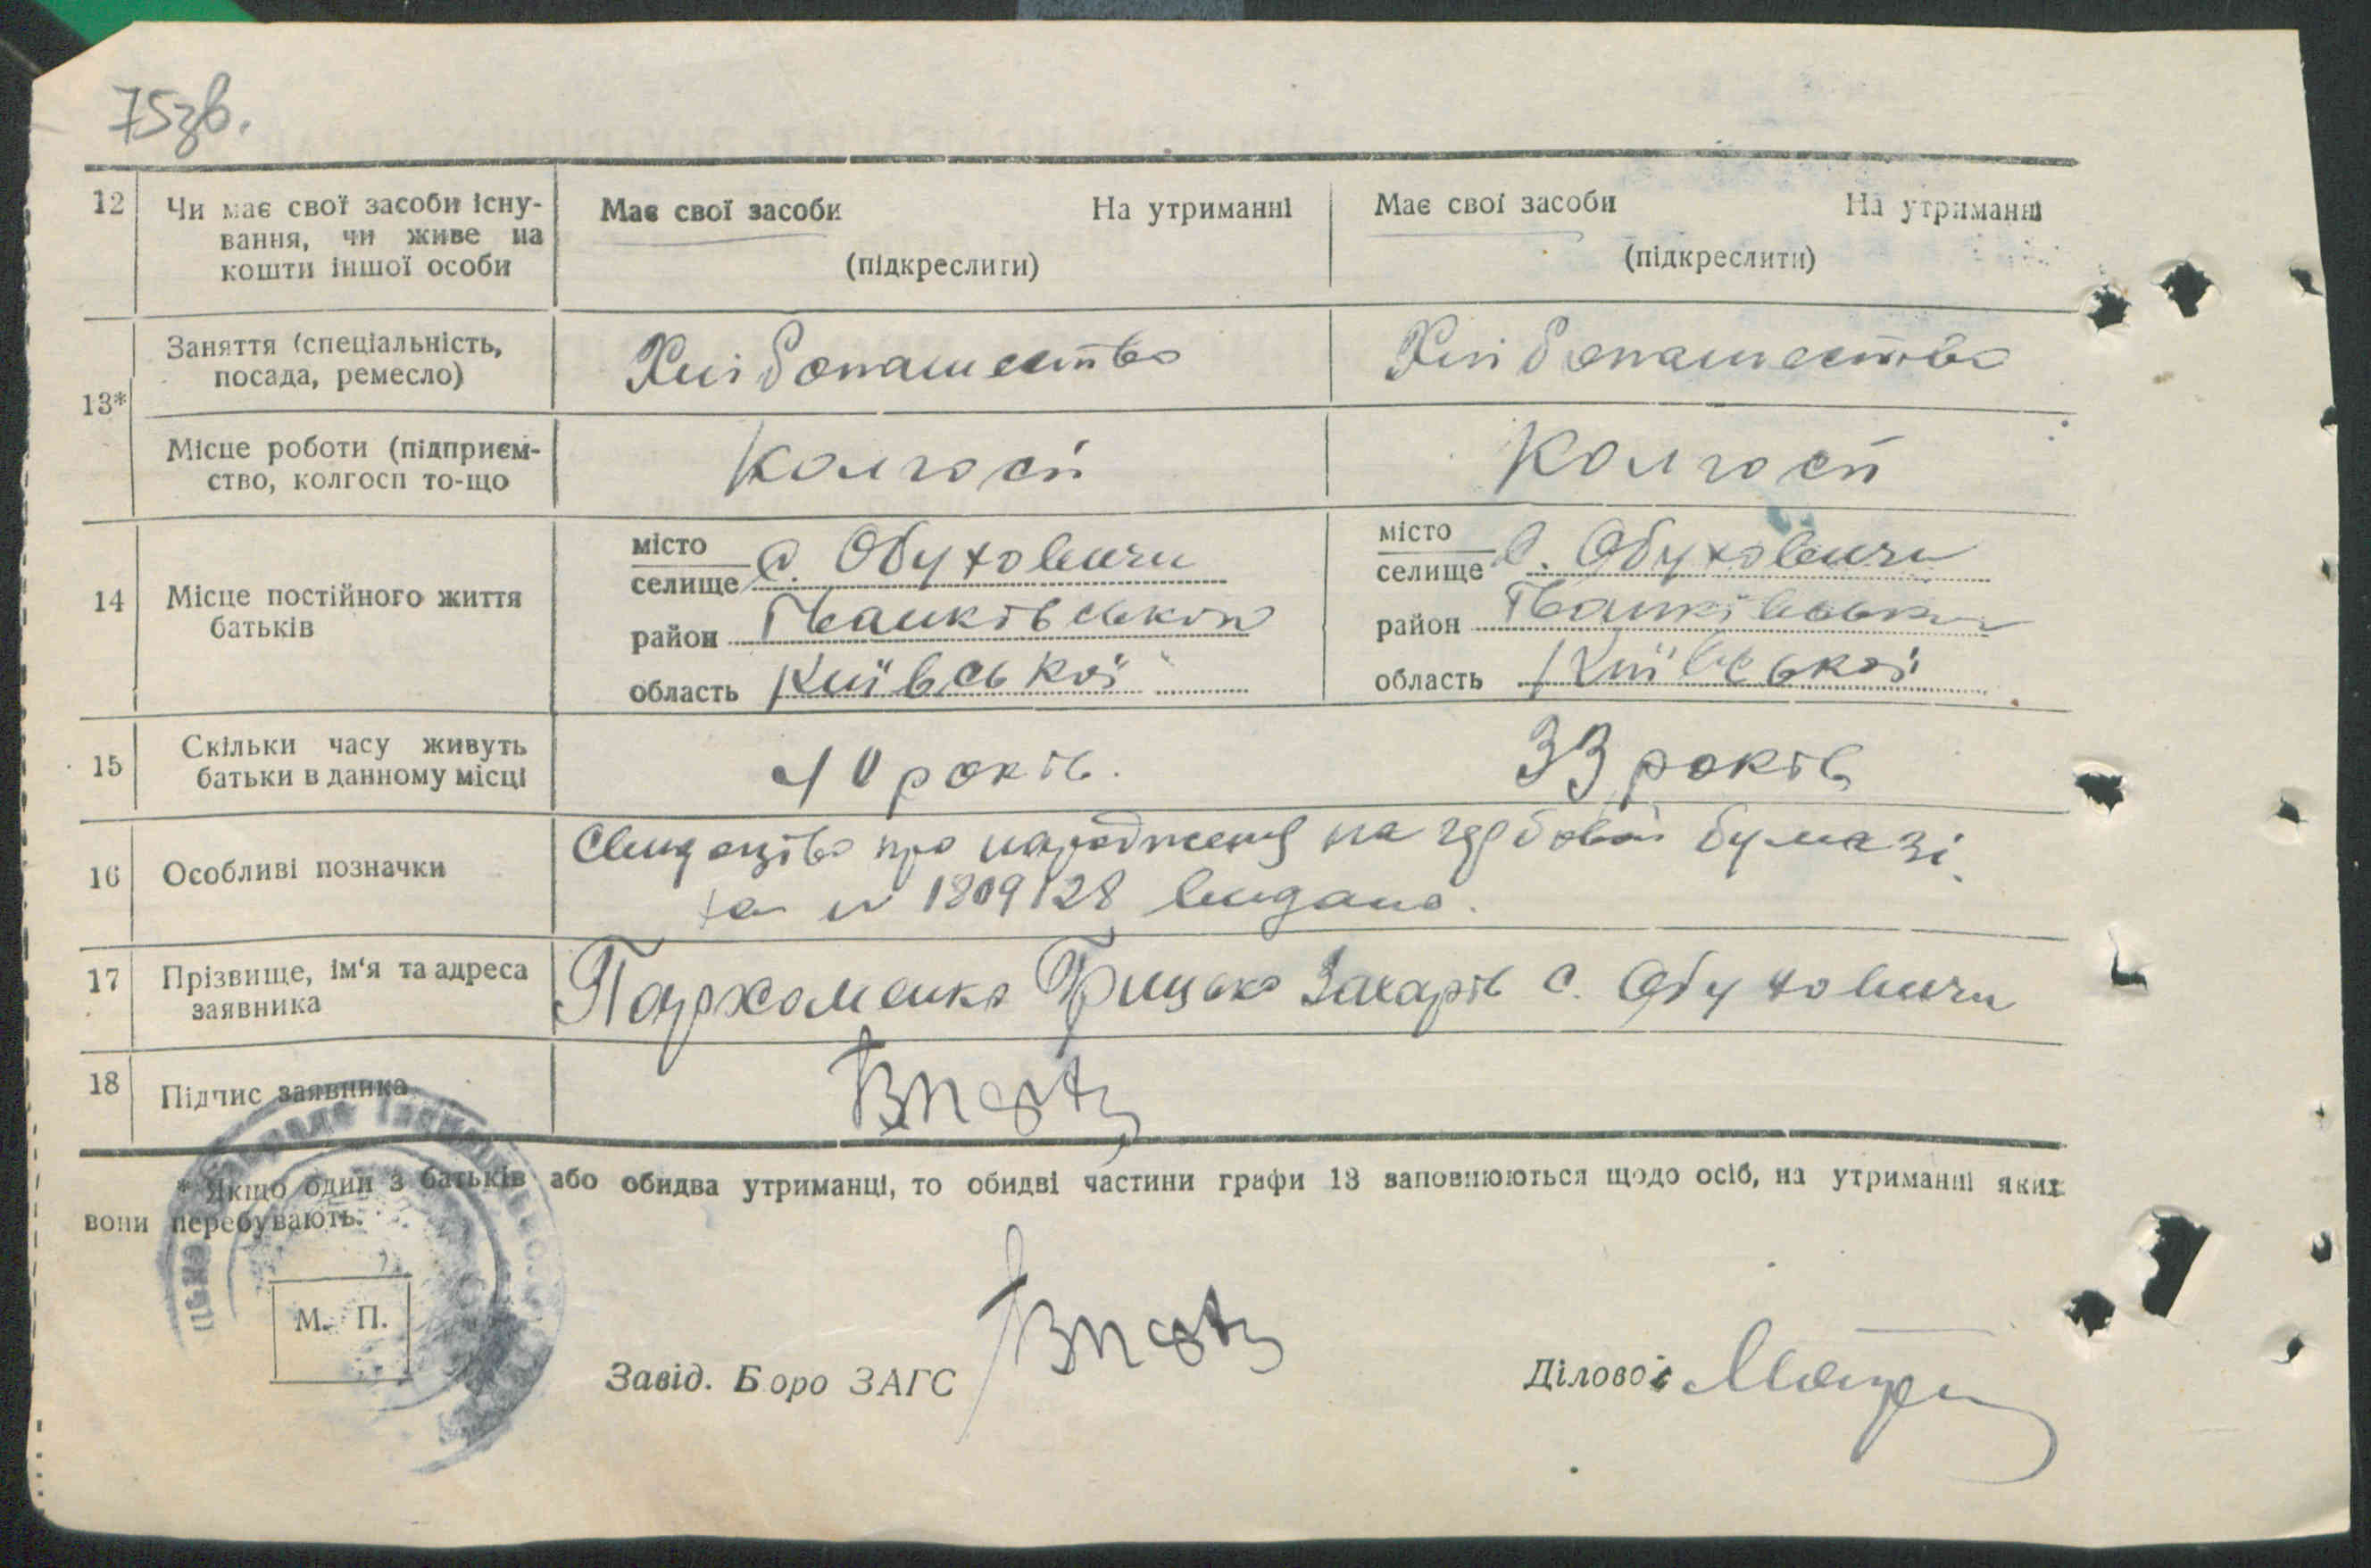 75зв.
12 Чи має свої засоби існу-
вання, чи живе на
кошти іншої особи
Має свої засоби На утриманні
(підкреслити)
Має свої засоби На утриманні
(підкреслити)
13*
Заняття (спеціальність,
посада, ремесло)
Хлібопашество
Хлібопашество
Місце роботи (підприєм-
ство, колгосп то-що
Колгосп
Колгосп
14 Місце постійного життя
батьків
місто
селище с. Обуховичи
район Іванківський
область Київської
місто
селище с. Обуховичи
район Іванківський
область Київської
15 Скільки часу живуть
батьки в данному місці
40 років.
33 років
16 Особливі позначки
Свидоцтво про народження на гербовой бумазі
за № 1809128 видано.
17 Прізвище, ім'я та адреса
заявника
Пархоменко Грицько Захарів с. Обуховичи
18 Підпис заявника
* Якщо один з батьків або обидва утриманці, то обидві частини графи 13 заповнюються щодо осіб, на утриманні яких
вони перебувають.
М. П.
Завід. Боро ЗАГС
Діловод